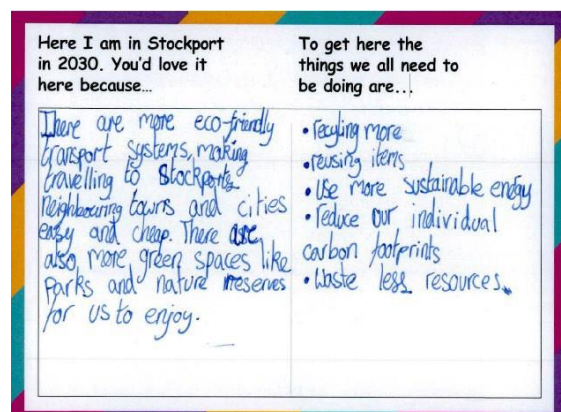 Here I am in Stockport
in 2030. You'd love it
here because...
There are more eco-friendly
transport systems, making
travelling to Stockports
neighbouring towns and cities
easy and cheap. There are
also more green spaces like
parks and nature reserves
for us to enjoy.
To get here the
things we all need to
be doing are...
• recyling more
• reusing items
• Use more sustainable energy
• reduce our individual
carbon footprints
• Waste less resources.